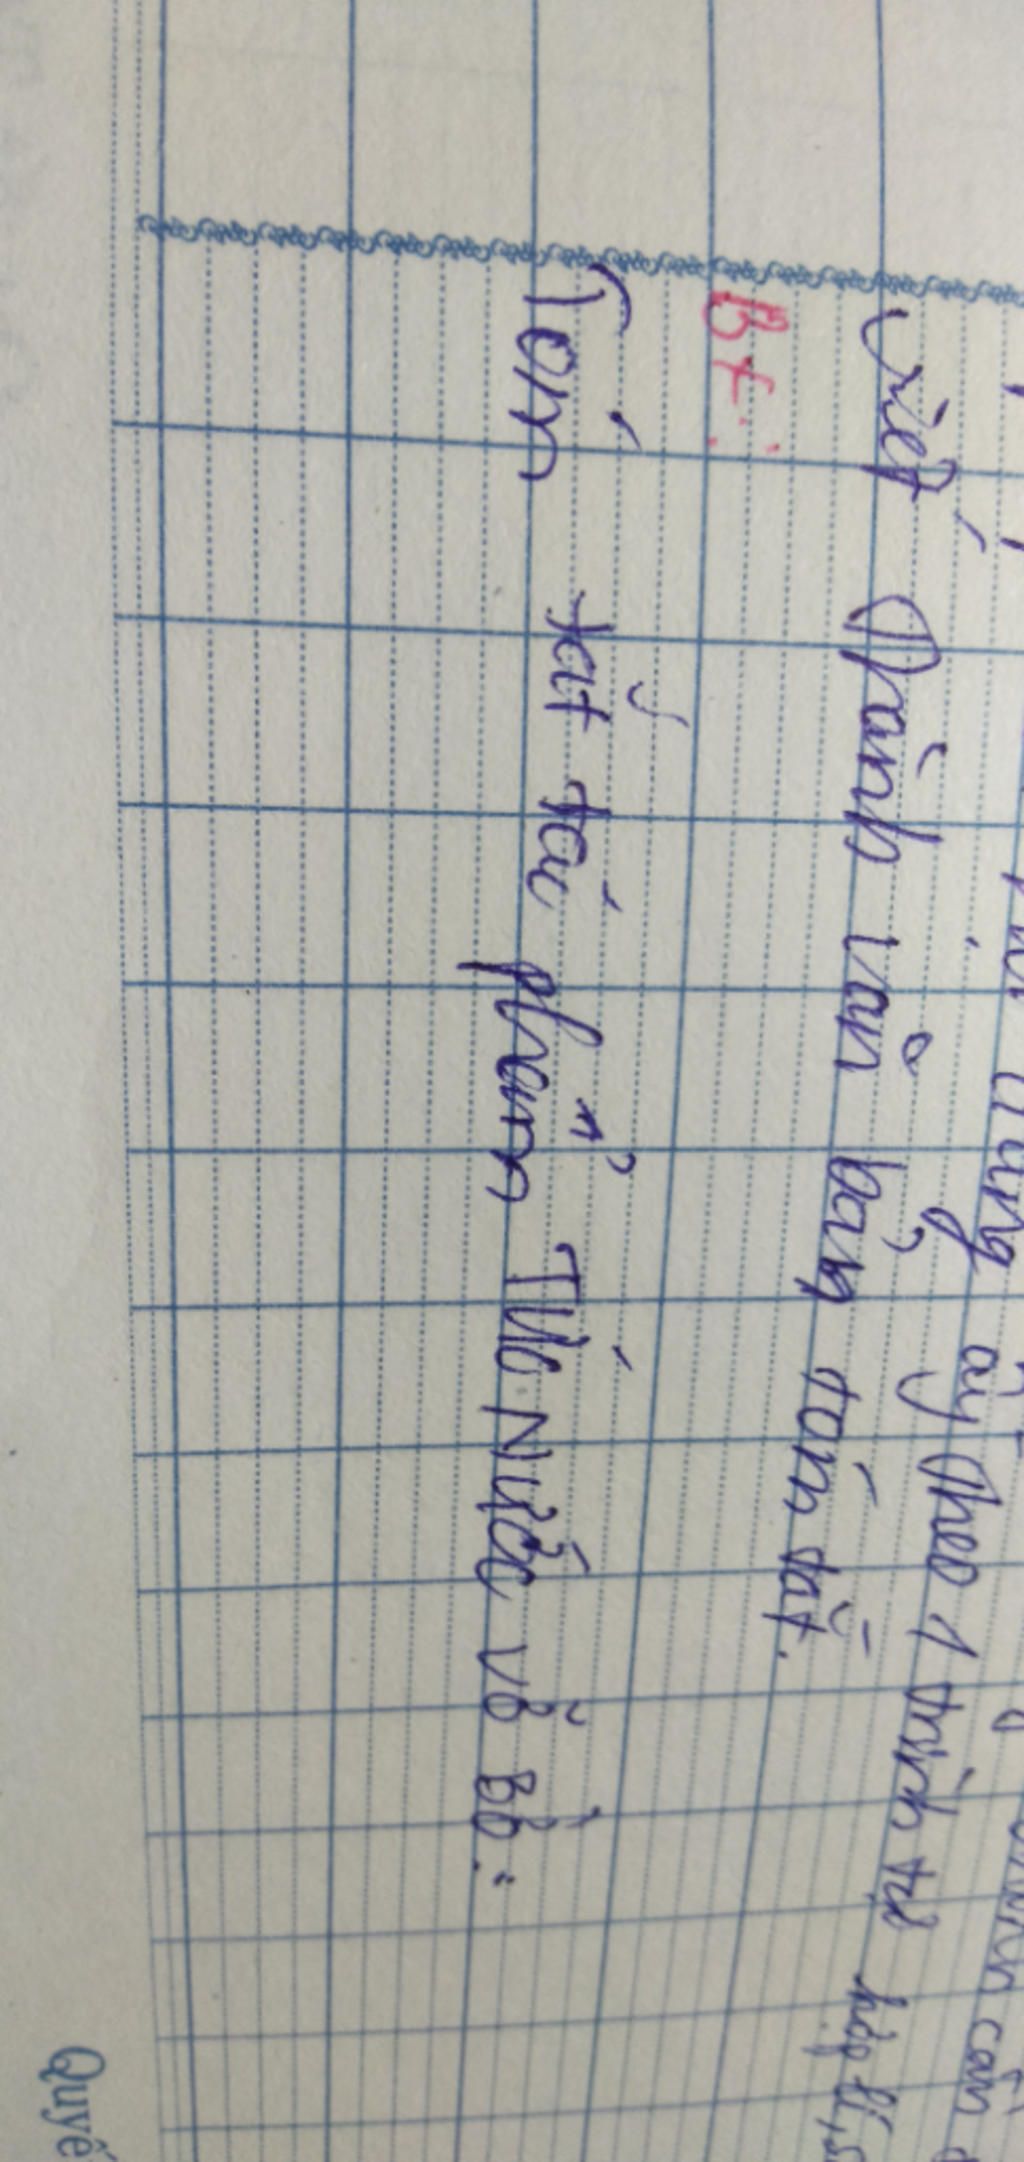 ấy theo 1 trình tự hợp lí,
Viết thành văn bản tóm tắt.
BT:
Tóm tắt tác phẩm Tức Nước vỡ Bờ:
Quyể